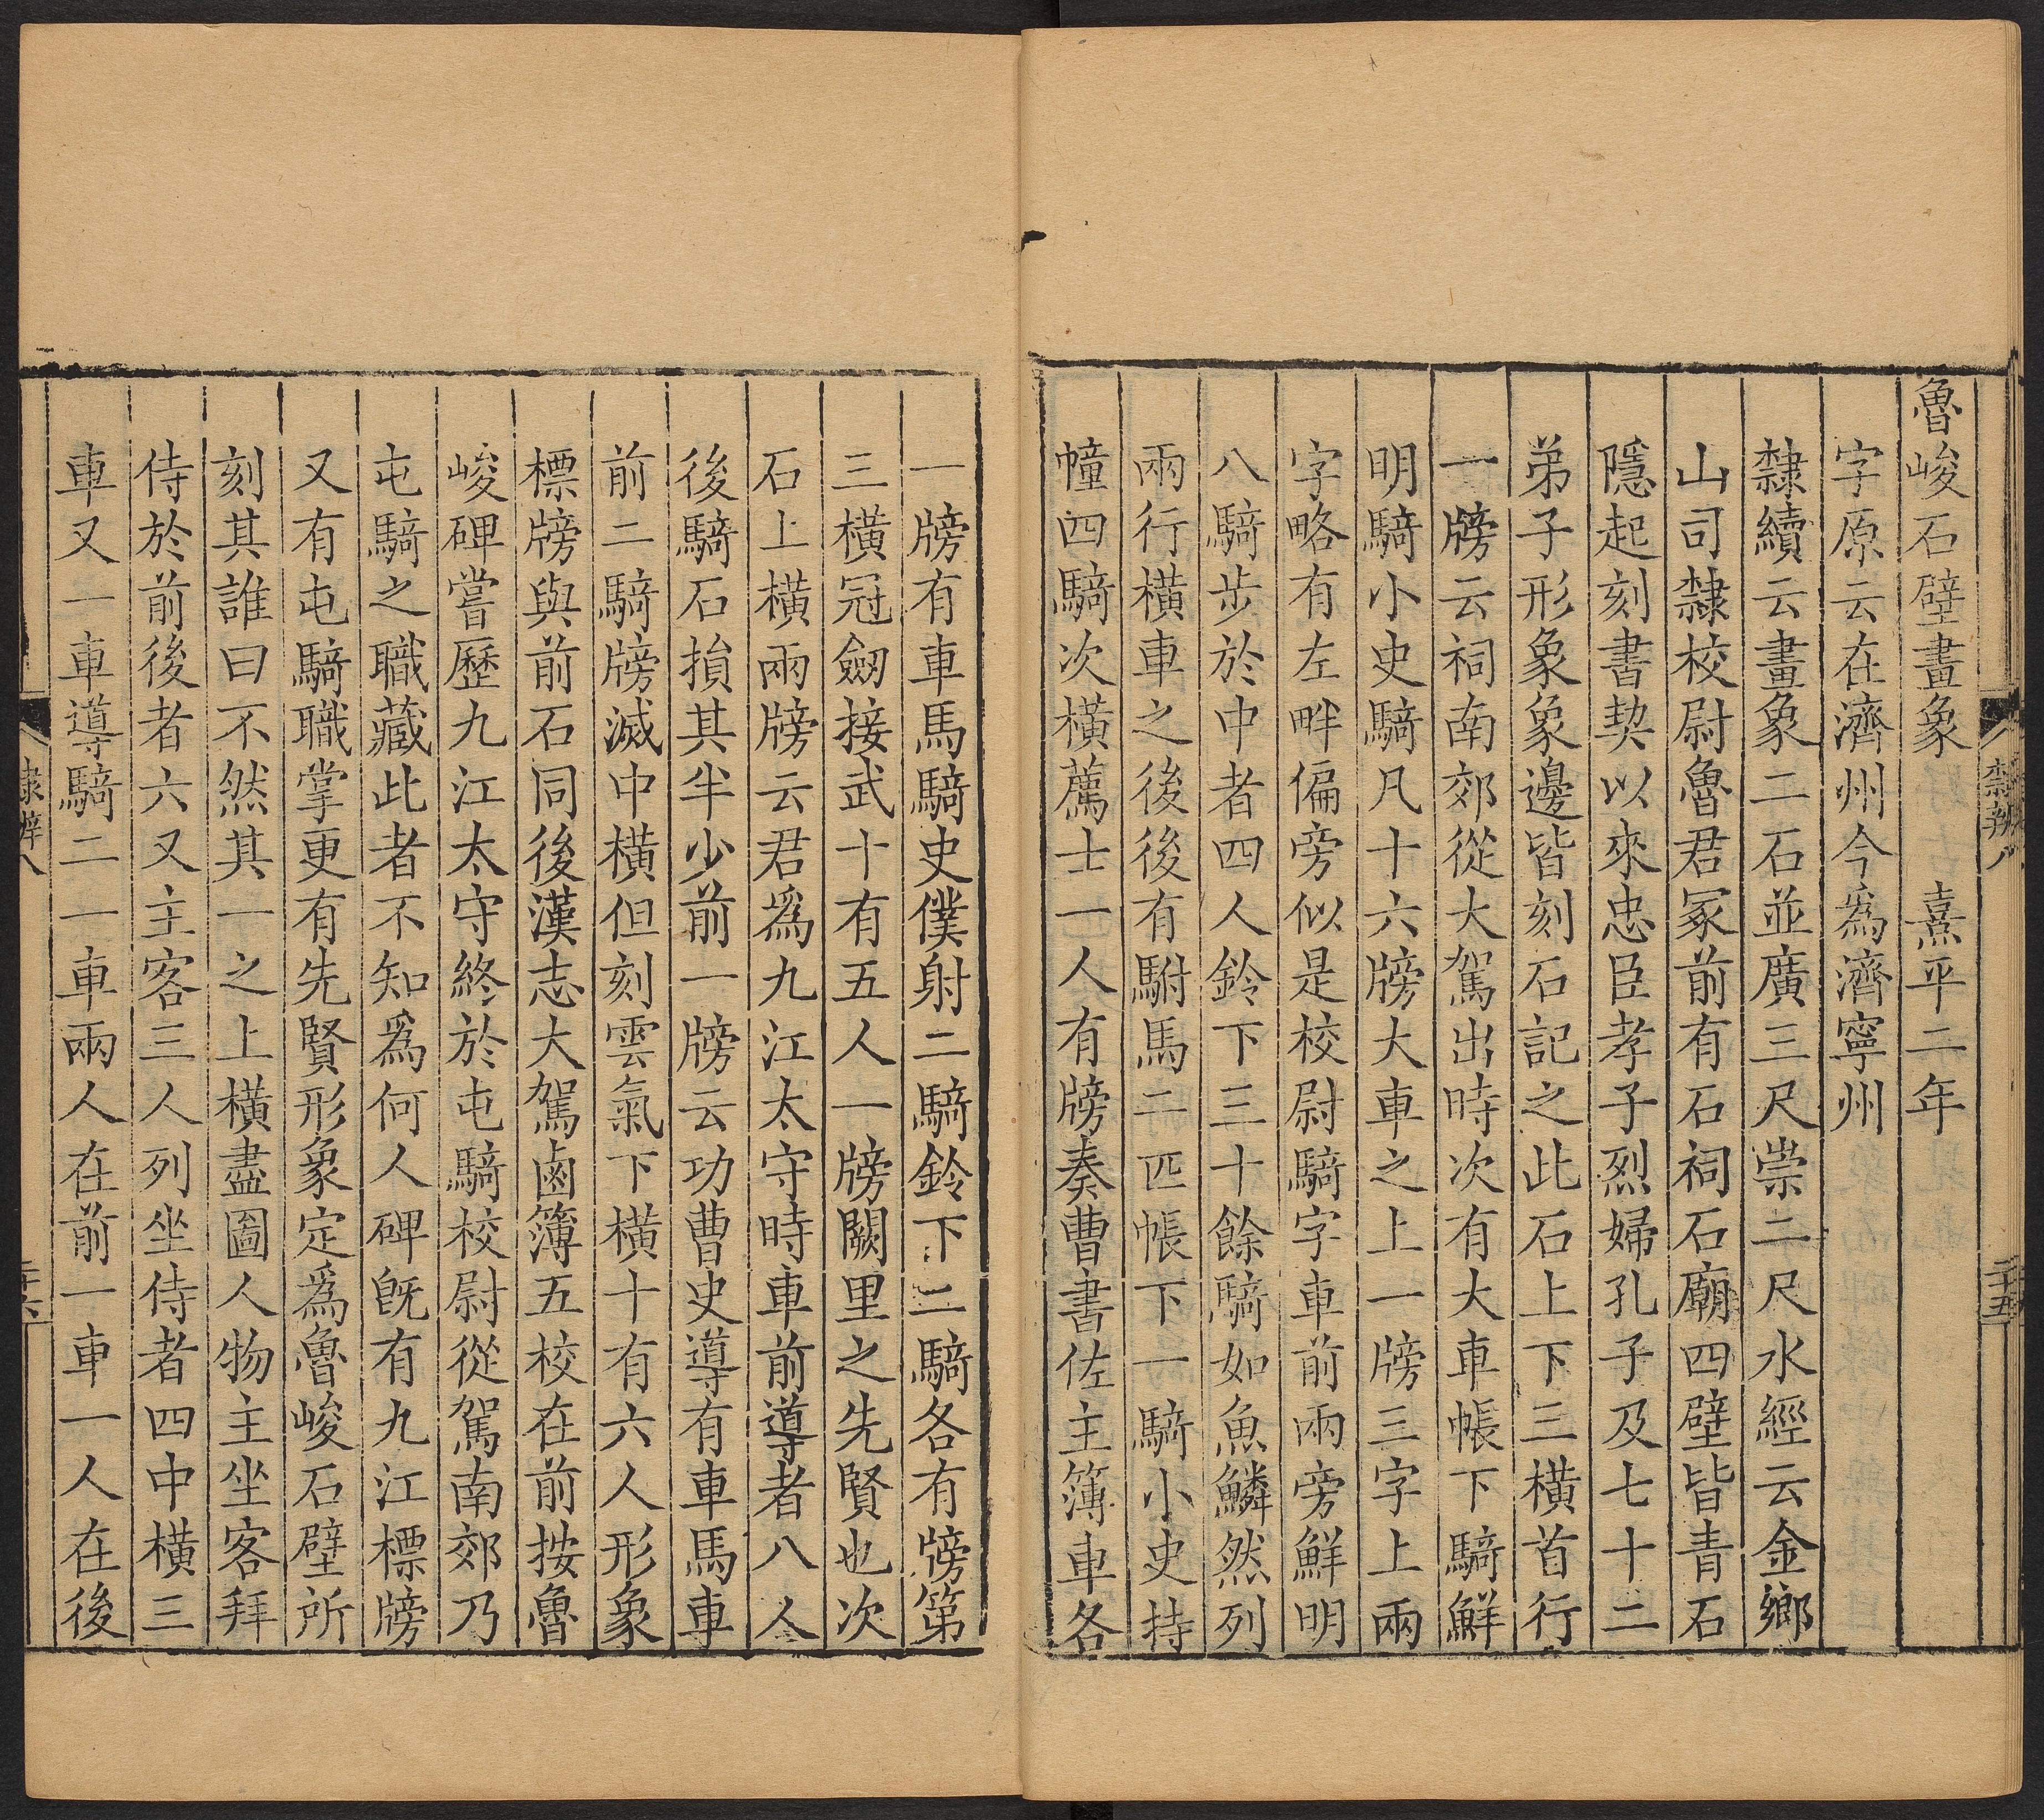 隸辨八
二十五
魯峻石壁畫象 熹平二年
字原云在濟州今爲濟寧州
隸續云畫象二石並廣三尺崇二尺水經云金鄉
山司隸校尉魯君冢前有石祠石廟四壁皆青石
隱起刻書契以來忠臣孝子烈婦孔子及七十二
弟子形象象邊皆刻石記之此石上下三橫首行
一牓云祠南郊從大駕出時次有大車帳下騎鮮
明騎小史騎凡十六牓大車之上一牓三字上兩
字略有左畔偏旁似是校尉騎字車前兩旁鮮明
八騎步於中者四人鈴下三十餘騎如魚鱗然列
兩行橫車之後後有駙馬二匹帳下一騎小史持
幢四騎次橫薦士一人有牓奏曹書佐主簿車各
一牓有車馬騎史僕射二騎鈴下二騎各有牓第
三橫冠劒接武十有五人一牓闕里之先賢也次
石上橫兩牓云君爲九江太守時車前導者八人
後騎石損其半少前一牓云功曹史導有車馬車
前二騎牓滅中橫但刻雲氣下橫十有六人形象
標牓與前石同後漢志大駕鹵簿五校在前按魯
峻碑嘗歷九江太守終於屯騎校尉從駕南郊乃
屯騎之職藏此者不知爲何人碑旣有九江標牓
又有屯騎職掌更有先賢形象定爲魯峻石壁所
刻其誰曰不然其一之上橫盡圖人物主坐客拜
侍於前後者六又主客三人列坐侍者四中橫三
車又一車導騎二一車兩人在前一車一人在後
隸辨八
二十六